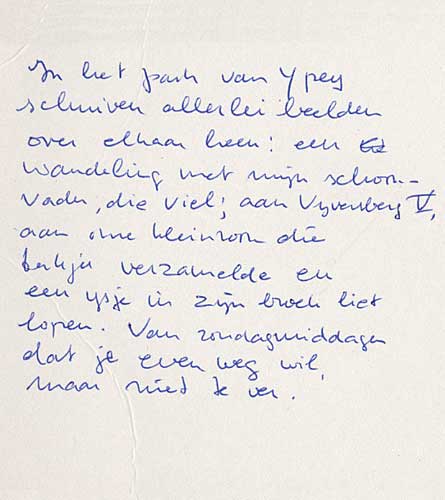 In het park van Ypey
schuiven allerlei beelden
over elkaar heen: een
wandeling met mijn schoon-
vader, die viel; aan Vijversberg V,
aan onze kleinzoon die
takjes verzamelde en
een ijsje in zijn broek liet
lopen. Van zondagmiddagen
dat je even weg wil,
maar niet te ver.